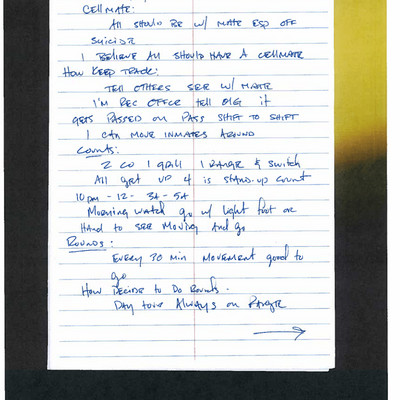 CELLMATE:
All should be w/ mate esp off
suicide
I believe all should have a cellmate
How keep track:
Tell others see w/ mate
I'm Rec officer tell OIG if
gets passed on pass shift to shift
I can move inmates around
Counts:
2 CO 1 grill 1 range & switch
All get up 4 is stand-up count
10pm - 12 - 3A - 5A
Morning watch go w/ light foot or
Hand to see moving and go
Rounds:
Every 30 min movement good to
go
How decide to do rounds.
Day tour always on range